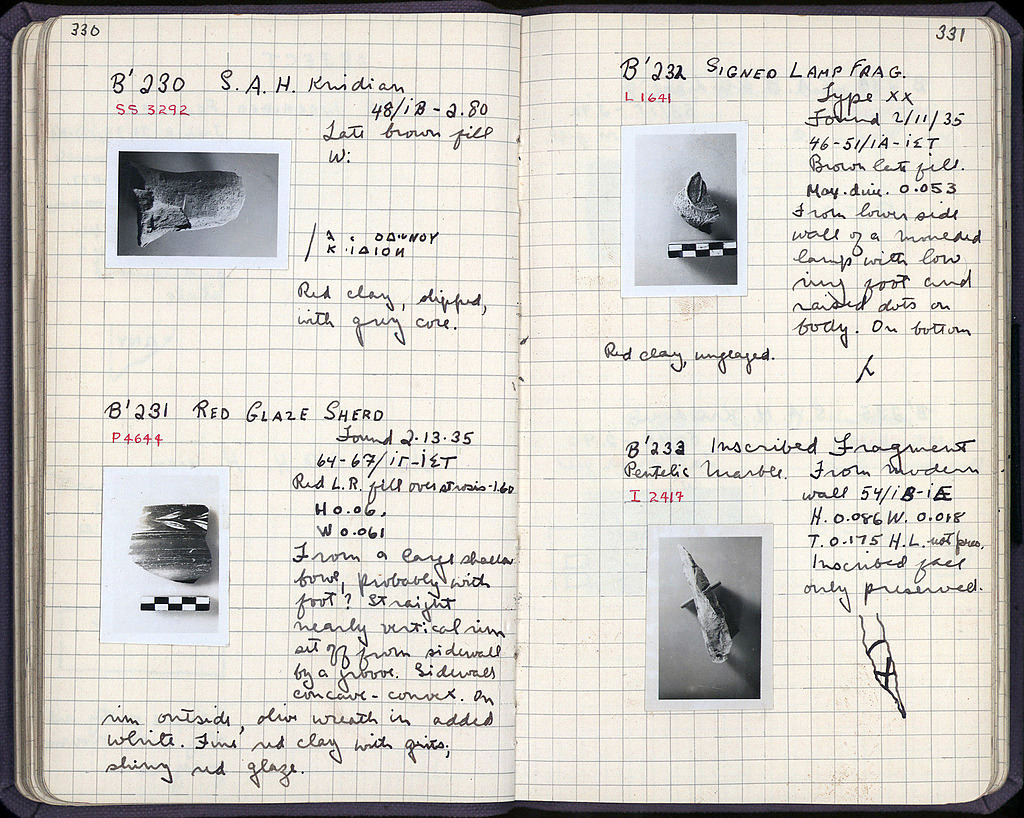 330
B'230 S.A.H. Knidian
SS 3292
48/ΙΒ - 2.80
Late brown fill
W:
Red clay, slipped,
with grey core.
B'231 RED GLAZE SHERD
P 4644
Found 2·13·35
64-67/ΙΓ-ΙΣΤ
Red L.R. fill over strosis -1.60
H 0.06.
W 0.061
From a large shallow
bowl, probably with
foot? Straight
nearly vertical rim
set off from sidewall
by a groove. Sidewalls
concave-convex. On
rim outside, olive wreath in added
white. Fine red clay with grits;
shiny red glaze.
331
B'232 SIGNED LAMP FRAG.
L 1641
Type XX
Found 2/11/35
46-51/ΙΑ-ΙΣΤ
Brown late fill.
Max. dim. 0.053
From lower side
wall of a moulded
lamp with low
ring foot and
raised dots on
body. On bottom
Red clay, unglazed.
B'233 Inscribed Fragment
Pentelic Marble.
From modern
I 2417
wall 54/ΙΒ-ΙΕ
H. 0.086 W. 0.018
T. 0.175 H.L. not pres.
Inscribed face
only preserved.